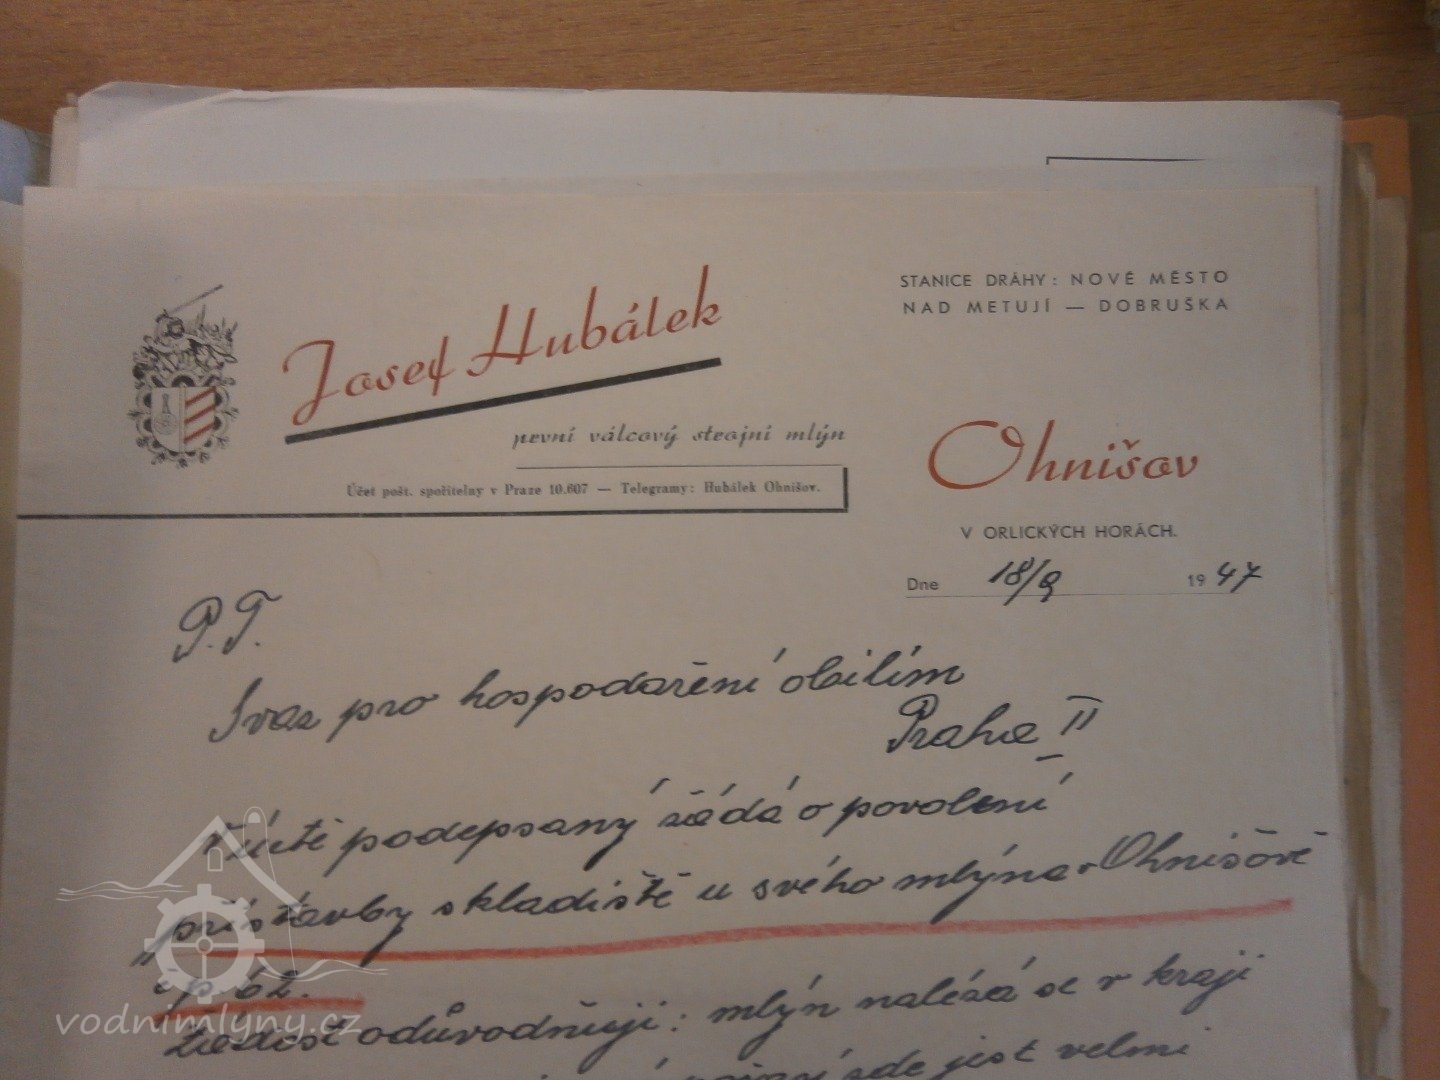 Josef Hubálek
první válcový strojní mlýn
Účet pošt. spořitelny v Praze 10.607 — Telegramy: Hubálek Ohnišov.
STANICE DRÁHY: NOVÉ MĚSTO
NAD METUJÍ — DOBRUŠKA
Ohnišov
V ORLICKÝCH HORÁCH.
Dne 18/9 1947
P.T.
Svaz pro hospodaření obilím
Praha II
V úctě podepsaný žádá o povolení
přístavby skladiště u svého mlýna v Ohnišově
čp 62.
Žádost odůvodňuji: mlýn nalézá se v kraji
zde jest velmi
vodnimlyny.cz